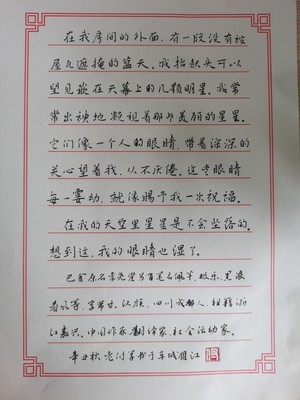 在我房间的外面,有一段没有被
屋瓦遮掩的蓝天,我抬起头可以
望见嵌在天幕上的几颗明星。我常
常出神地凝视着那些美丽的星星。
它们像一个人的眼睛,带着深深的
关心望着我,从不厌倦。这些眼睛
每一霎动,就像赐予我一次祝福。
在我的天空里星星是不会坠落的。
想到这,我的眼睛也湿了。
巴金原名李尧棠另有笔名佩竿、极乐、黑浪
春风等,字芾甘。汉族,四川成都人,祖籍浙
江嘉兴。中国作家、翻译家、社会活动家。
辛丑秋 书于车城湛江